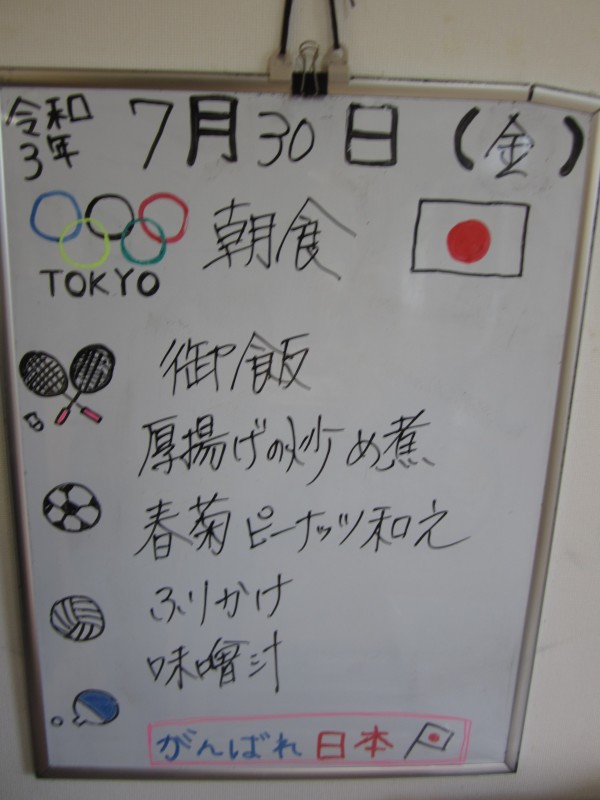 令和3年 7月30日(金)
TOKYO
朝食
御飯
厚揚げの炒め煮
春菊ピーナッツ和え
ふりかけ
味噌汁
がんばれ日本